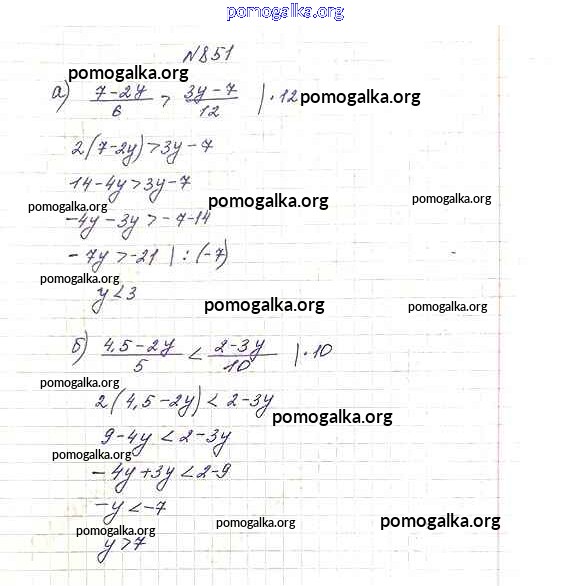 pomogalka.org
N851
pomogalka.org
а) 7-2y/6 > 3y-7/12 | ·12 pomogalka.org
2(7-2y)>3y-7
14-4y>3y-7
pomogalka.org pomogalka.org pomogalka.org
-4y-3y>-7-14
-7y>-21 | : (-7)
pomogalka.org
y<3 pomogalka.org pomogalka.org
б) 4,5-2y/5 < 2-3y/10 | ·10
pomogalka.org
2(4,5-2y)<2-3y
pomogalka.org
9-4y<2-3y
pomogalka.org
-4y+3y<2-9
-y<-7
pomogalka.org pomogalka.org pomogalka.org
y>7